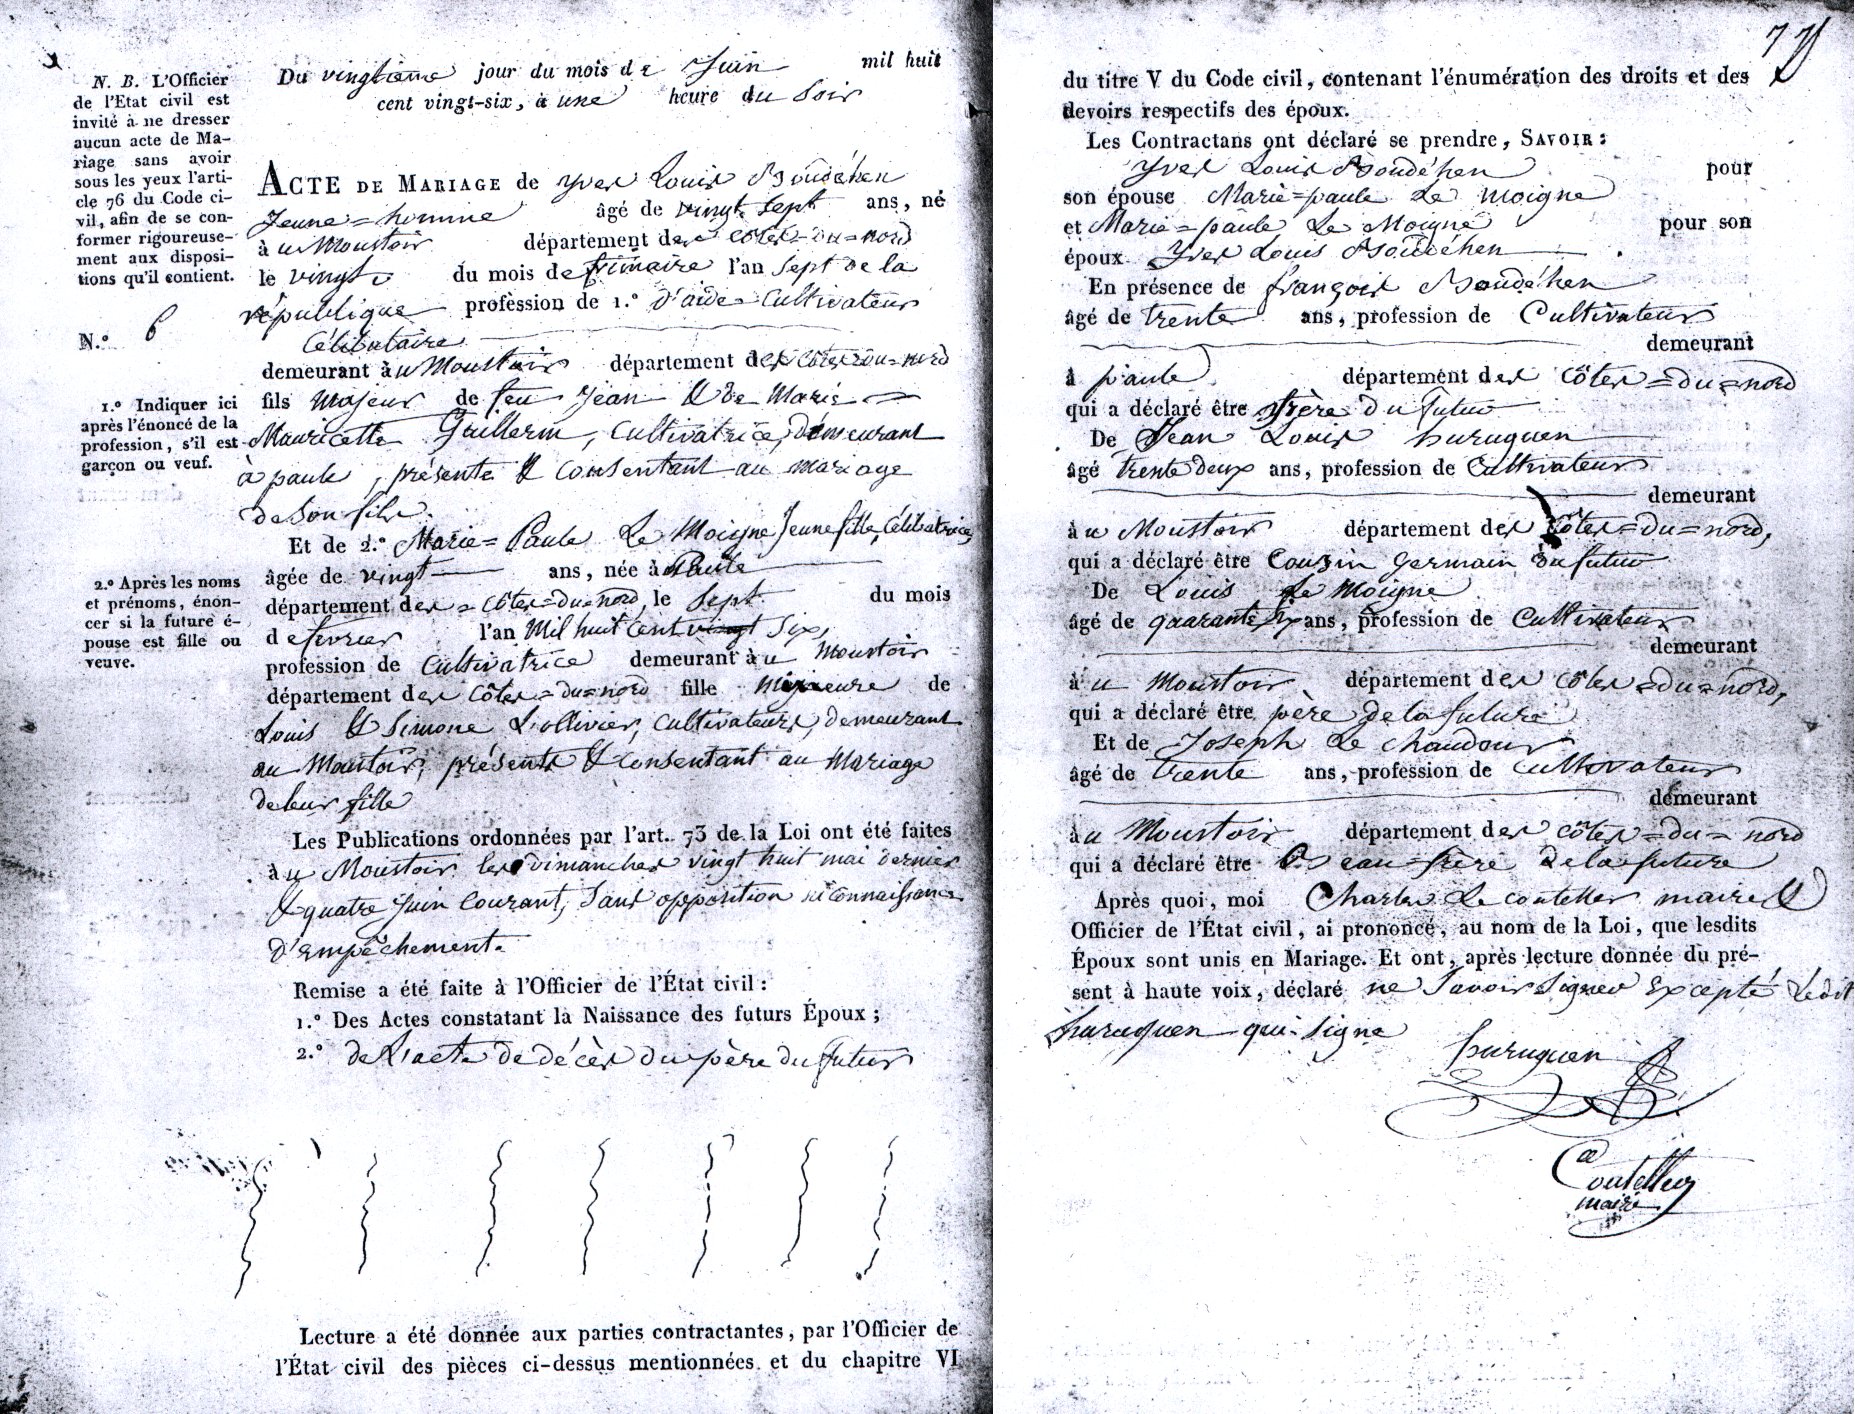 N. B. L'Officier
de l'Etat civil est
invité à ne dresser
aucun acte de Ma-
riage sans avoir
sous les yeux l'arti-
cle 76 du Code ci-
vil, afin de se con-
former rigoureuse-
ment aux disposi-
tions qu'il contient.
N.º 6
1.º Indiquer ici
après l'énoncé de la
profession, s'il est
garçon ou veuf.
2.º Après les noms
et prénoms, énon-
cer si la future é-
pouse est fille ou
veuve.
Du vingtième jour du mois de Juin mil huit
cent vingt-six, à une heure du Soir
ACTE DE MARIAGE de Yves Louis Boudéhen
Jeune=homme âgé de vingt Sept ans, né
à u Moustoir département des côtes=du=nord
le vingt du mois de frimaire l'an Sept de la
république profession de 1.º d'aide Cultivateur
Célibataire
demeurant àu Moustoir département des côtes=du=nord
fils majeur de feu Jean & de Marie
Mauricette Guillerm, Cultivatrice, demeurant
à paule, présente & consentant au mariage
de Son fils.
Et de 2.º Marie=Paule Le Moigne Jeune fille, Célibatrice,
âgée de vingt ans, née à Paule
département des=côtes=du=nord, le Sept du mois
de fevrier l'an Mil huit Cent vingt Six,
profession de Cultivatrice demeurant àu Moustoir
département des Côtes=du=nord fille mineure de
Louis & Simone L'ollivier, Cultivateurs, demeurant
au Moustoir, présents & consentant au Mariage
de leur fille
Les Publications ordonnées par l'art. 73 de la Loi ont été faites
àu Moustoir les dimanches vingt huit mai dernier
& quatre Juin Courant, Sans opposition ni connaissance
d'empêchement.
Remise a été faite à l'Officier de l'État civil :
1.º Des Actes constatant la Naissance des futurs Époux ;
2.º de L'acte de décès du père du futur
Lecture a été donnée aux parties contractantes, par l'Officier de
l'État civil des pièces ci-dessus mentionnées et du chapitre VI
du titre V du Code civil, contenant l'énumération des droits et des
devoirs respectifs des époux.
Les Contractans ont déclaré se prendre, SAVOIR :
Yves Louis Boudéhen pour
son épouse Marie=paule Le Moigne
et Marie=paule Le Moigne pour son
époux Yves Louis Boudéhen
En présence de françois Boudéhen
âgé de trente ans, profession de Cultivateur
demeurant
à paule département des côtes=du=nord
qui a déclaré être frère du futur
De Jean Louis huruguen
âgé trente deux ans, profession de Cultivateur
demeurant
àu Moustoir département des Côtes=du=nord,
qui a déclaré être Cousin germain du futur
De Louis Le Moigne
âgé de quarante six ans, profession de Cultivateur
demeurant
àu Moustoir département des côtes=du=nord,
qui a déclaré être père de la future
Et de Joseph Le chaudour
âgé de trente ans, profession de Cultivateur
demeurant
àu Moustoir département des côtes=du=nord
qui a déclaré être Beau=frère de la future
Après quoi, moi Charles Le couteller maire &
Officier de l'État civil, ai prononcé, au nom de la Loi, que lesdits
Époux sont unis en Mariage. Et ont, après lecture donnée du pré-
sent à haute voix, déclaré ne Savoir Signer Excepté Ledit
huruguen qui Signe
huruguen
Le Coutelleur
maire